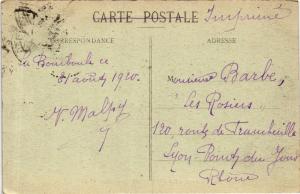 CARTE POSTALE
Imprimé
CORRESPONDANCE
ADRESSE
La Bourboule ce
21 août 1920.
Monsieur Barbe,
Les Rosiers
120, route de Francheville
Lyon-Point-du-Jour
Rhône